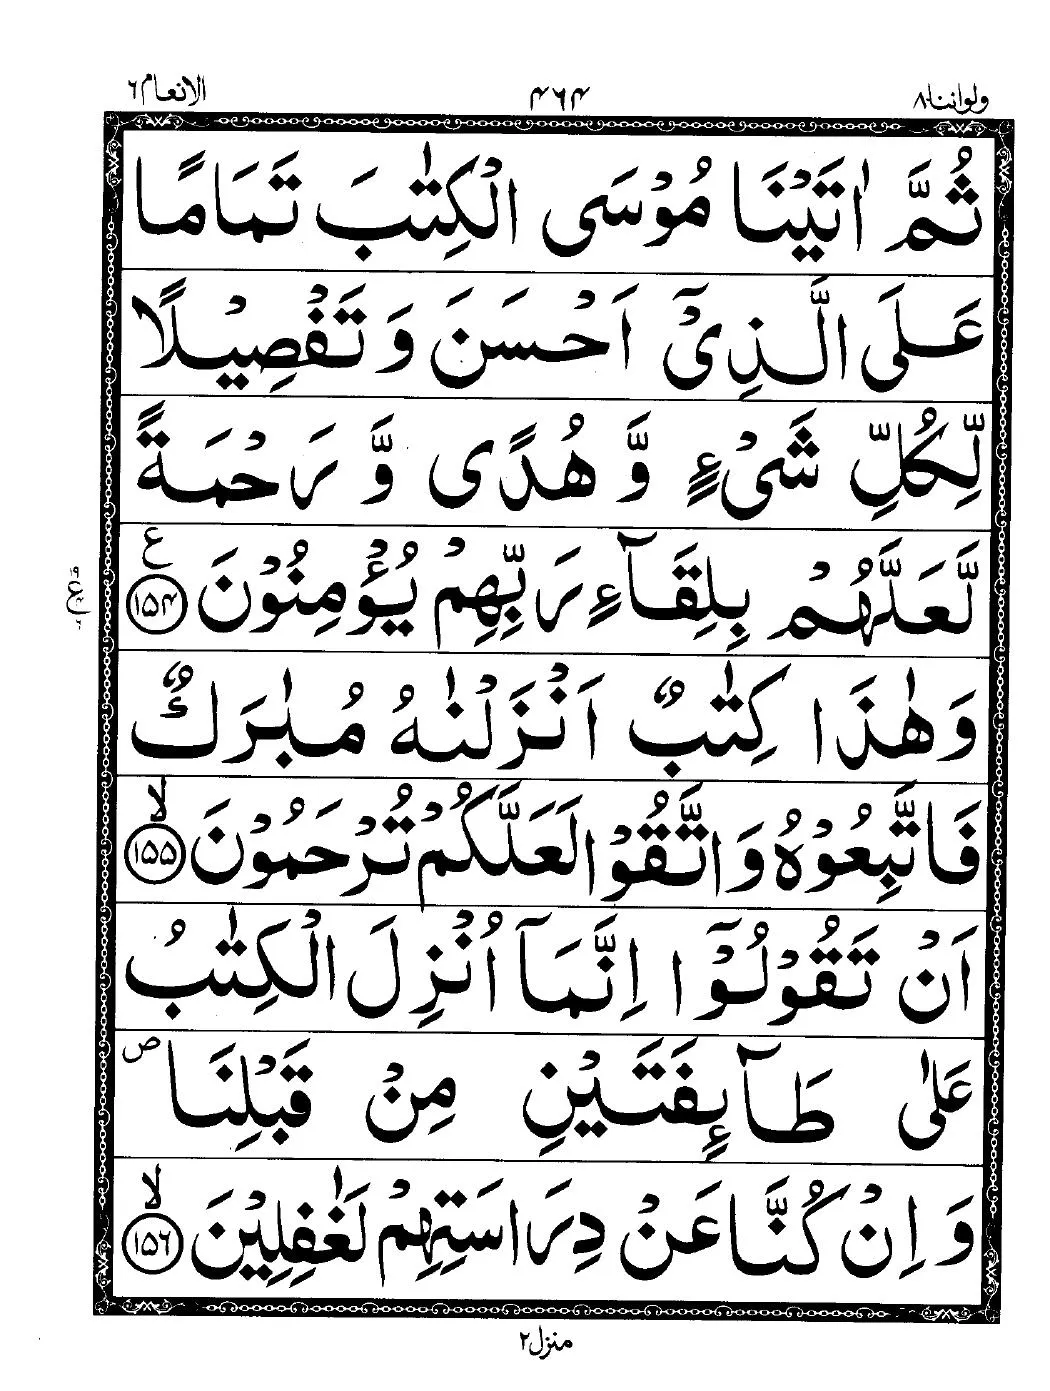 ولواننا ٨ ۴۶۴ الانعام ٦
ثُمَّ اٰتَيْنَا مُوْسَى الْكِتٰبَ تَمَامًا
عَلَى الَّذِیْۤ اَحْسَنَ وَ تَفْصِيْلًا
لِّكُلِّ شَیْءٍ وَّ هُدًى وَّ رَحْمَةً
لَّعَلَّهُمْ بِلِقَآءِ رَبِّهِمْ يُؤْمِنُوْنَ ﴿۱۵۴﴾ ع
وَ هٰذَا كِتٰبٌ اَنْزَلْنٰهُ مُبٰرَكٌ
فَاتَّبِعُوْهُ وَ اتَّقُوْا لَعَلَّكُمْ تُرْحَمُوْنَ ﴿۱۵۵﴾ لا
اَنْ تَقُوْلُوْۤا اِنَّمَاۤ اُنْزِلَ الْكِتٰبُ
عَلٰى طَآئِفَتَيْنِ مِنْ قَبْلِنَا ص
وَ اِنْ كُنَّا عَنْ دِرَاسَتِهِمْ لَغٰفِلِيْنَ ﴿۱۵۶﴾ لا
منزل ٢